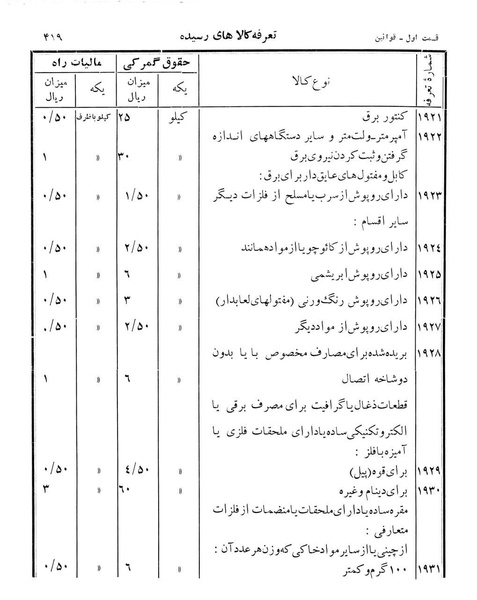 قسمت اول - قوانین تعرفه کالاهای رسیده ۴۱۹
شمارهٔ تعرفه نوع کالا حقوق گمرکی مالیات راه
یکه میزان ریال یکه میزان ریال
۱۹۲۱ کنتور برق کیلو ۲۵ کیلو باظرف ۰/۵۰
۱۹۲۲ آمپرمتر-ولت‌متر و سایر دستگاههای اندازه
گرفتن و ثبت کردن نیروی برق « ۳۰ « ۱
کابل و مفتولهای عایق دار برای برق :
۱۹۲۳ دارای روپوش از سرب یا مسلح از فلزات دیگر « ۱/۵۰ « ۰/۵۰
سایر اقسام :
۱۹۲۴ دارای روپوش از کائوچو یا از مواد همانند « ۲/۵۰ « ۰/۵۰
۱۹۲۵ دارای روپوش ابریشمی « ۶ « ۱
۱۹۲۶ دارای روپوش رنگ ورنی (مفتولهای لعابدار) « ۳ « ۰/۵۰
۱۹۲۷ دارای روپوش از مواد دیگر « ۲/۵۰ « ۰/۵۰
۱۹۲۸ بریده شده برای مصارف مخصوص با یا بدون
دوشاخه اتصال « ۶ « ۱
قطعات ذغال یا گرافیت برای مصرف برقی یا
الکتروتکنیکی ساده یا دارای ملحقات فلزی یا
آمیزه با فلز :
۱۹۲۹ برای قوه (پیل) « ٤/۵۰ « ۰/۵۰
۱۹۳۰ برای دینام و غیره « ۶۰ « ۳
مقره ساده یا دارای ملحقات یا منضمات از فلزات
متعارفی :
از چینی یا از سایر مواد خاکی که وزن هر عدد آن :
۱۹۳۱ ۱۰۰ گرم و کمتر « ۶ « ۰/۵۰